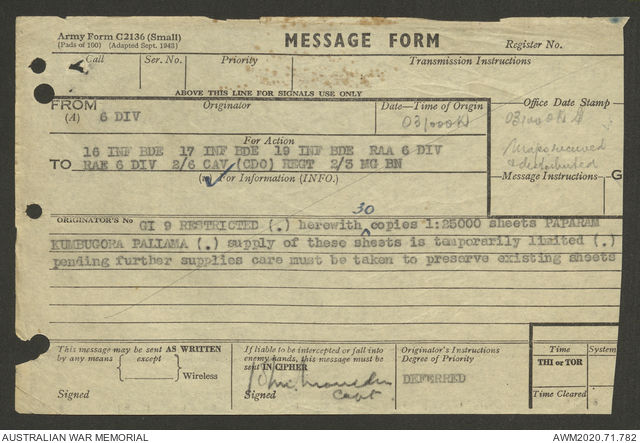 Army Form C2136 (Small)
(Pads of 100) (Adapted Sept. 1943)
MESSAGE FORM
Register No.
Call
Ser. No.
Priority
Transmission Instructions
ABOVE THIS LINE FOR SIGNALS USE ONLY
FROM
(A) 6 DIV
Originator
Date—Time of Origin
Office Date Stamp
For Action
16 INF BDE 17 INF BDE 19 INF BDE RAA 6 DIV
TO RAE 6 DIV 2/6 CAV (CDO) REGT 2/3 MG BN
For Information (INFO.)
Maps received
& distributed
Message Instructions
G
ORIGINATOR'S No GI 9 RESTRICTED (.) herewith 30 copies 1:25000 sheets PAPARAM
KUMBUGORA PALIAMA (.) supply of these sheets is temporarily limited (.)
pending further supplies care must be taken to preserve existing sheets
This message may be sent AS WRITTEN
by any means except
Wireless
Signed
If liable to be intercepted or fall into
enemy hands, this message must be
sent IN CIPHER
Signed Capt
Originator's Instructions
Degree of Priority
DEFERRED
Time
System
THI or TOR
Time Cleared
AUSTRALIAN WAR MEMORIAL
AWM2020.71.782